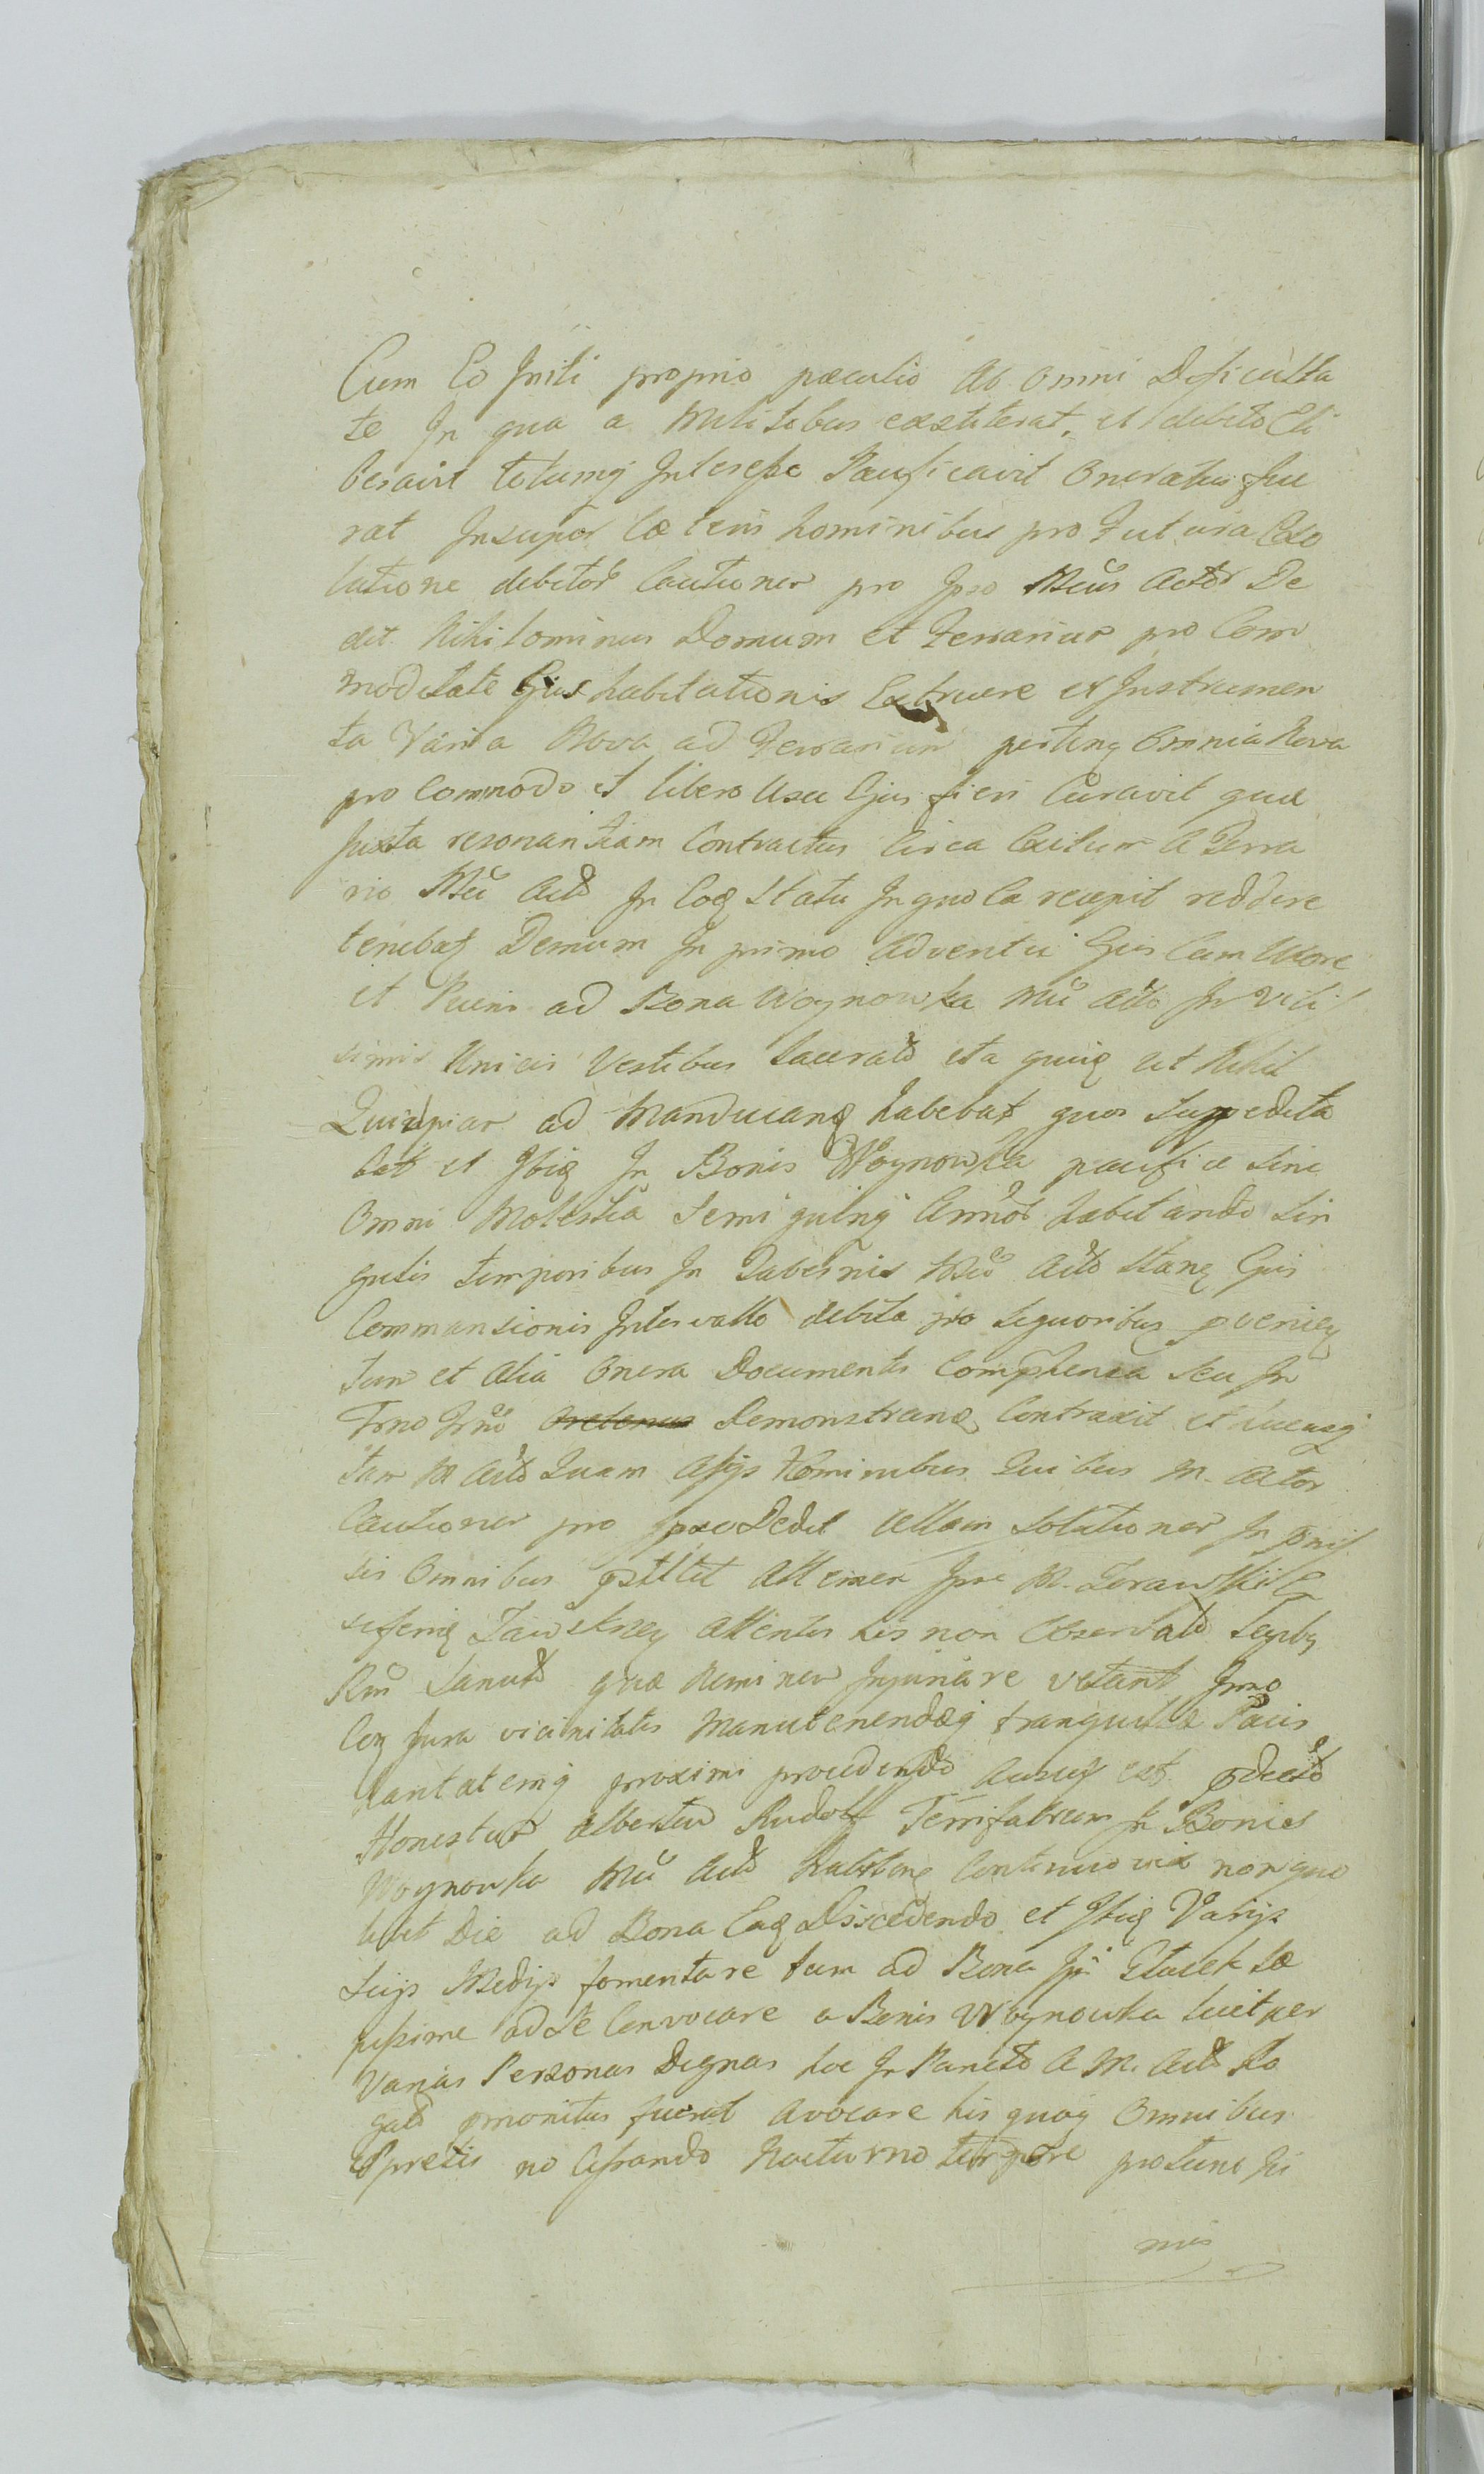 Cum Eo Initi proprio pæculio Ab omni Deficulta
te In qua a Militibus exstiterat, et debito Eli
beravit totumq Interesse Pacificavit Oneratus fue
rat Insuper Cæteris hominibus pro Futura Exo
lutione debitor Cautionem pro Ipso Mcus Actor De
dit Nihilominus Domum et Ferrariam pro Com
moditate Ejus habitationis Extruere et Instrumen
ta Varia Nova ad Ferrariam pertinq Omnia Nova
pro Commodo et libero Usu Ejus fieri Curavit quæ
Juxta resonantiam Contractus Circa Exitum A Ferra
rio Mci Actō In Eoq Statu In quo Ea recepit reddere
tenebat Demum In primo Adventu Ejus Cum Uxore
et Pueris ad Bona Woynowka Mci Actō In Vilis
simis Unicis Vestibus Lacerato ita quiq ut Nihil
Quidpiam ad Manducanq habebat quos Suppedita
bat et Ibiq In Bonis Woynowka pacifice Sine
Omni Molestia Semi quinq Annor habitando Sin
gulis temporibus In Tabernis Mci Actō Stanq Ejus
Commansionis Intervallo debita pro Liquoribus pveniq
tum et Alia Onera Documentis Comprhensa Seu In
Trno Demonstranq Contraxit et hucusq
tam M Actō Quam Alijs Hominibus Quibus M. Actor
Cautionem pro Ipso Dedit Ullam Solutionem In pmis
sis Omnibus pstitit Attamen Ipse M.
attentis his non Observatō Legibq
Rni Sancitō quæ Neminem Injuriare vetant Imo
Coq Jura vicinitatis Manutenendæq tranquillæ Pacis
proximi procedendo Ausus est pdictō
Honestum Albertum Rudolff Ferrifabrum In Bonis
Woynowka Mci Actō Habitanq Continuo via non quo
libet Die ad Bona Eaq Discedendo et Ibiq Varijs
Suijs Medijs fomentare tam ad Bona Ipi Stasek Sæ
pissime ad Se Convocare a Bonis Woynowka licet per
Varias Personas Dignas hoc In Puncto A M. Actō Ro
gatō pmonitus fuerat Avocare his quoq Omnibus
Spretis no Cessando Nocturno tempore protunc In
mis